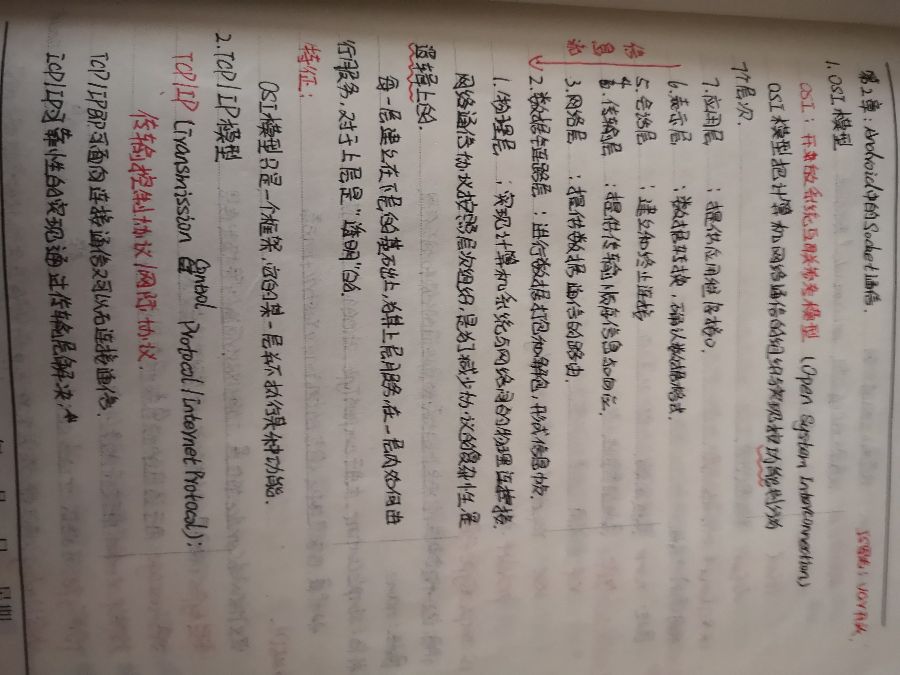 第2章：Android中的Socket通信.
1. OSI模型
OSI：开放系统互联参考模型 (Open System Interconnection)
OSI模型把计算机网络通信的组织与实现按功能划分
7个层次.
7. 应用层 ：提供应用程序接口.
6. 表示层 ：数据转换，确认数据格式.
5. 会话层 ：建立和终止连接
4. 传输层 ：提供传输顺序信息和响应.
3. 网络层 ：提供数据通信的路由.
2. 数据链路层 ：进行数据打包和解包，形成信息帧.
1. 物理层 ：实现计算机系统与网络间的物理连接.
信息流
网络通信协议按照层次组织，是为了减少协议的复杂性，是
逻辑上的.
每一层建立在下层的基础上，为其上层服务，在一层内如何进
行服务，对于上层是"透明"的.
特征：
OSI模型只是一个框架，它的某一层并不执行具体功能.
2. TCP/IP模型
Symbol
TCP/IP (Transmission Protocol/Internet Protocol)：
传输控制协议/网际协议.
TCP/IP即可面向连接通信又可以无连接通信.
TCP/IP可靠性的实现通过传输层解决.